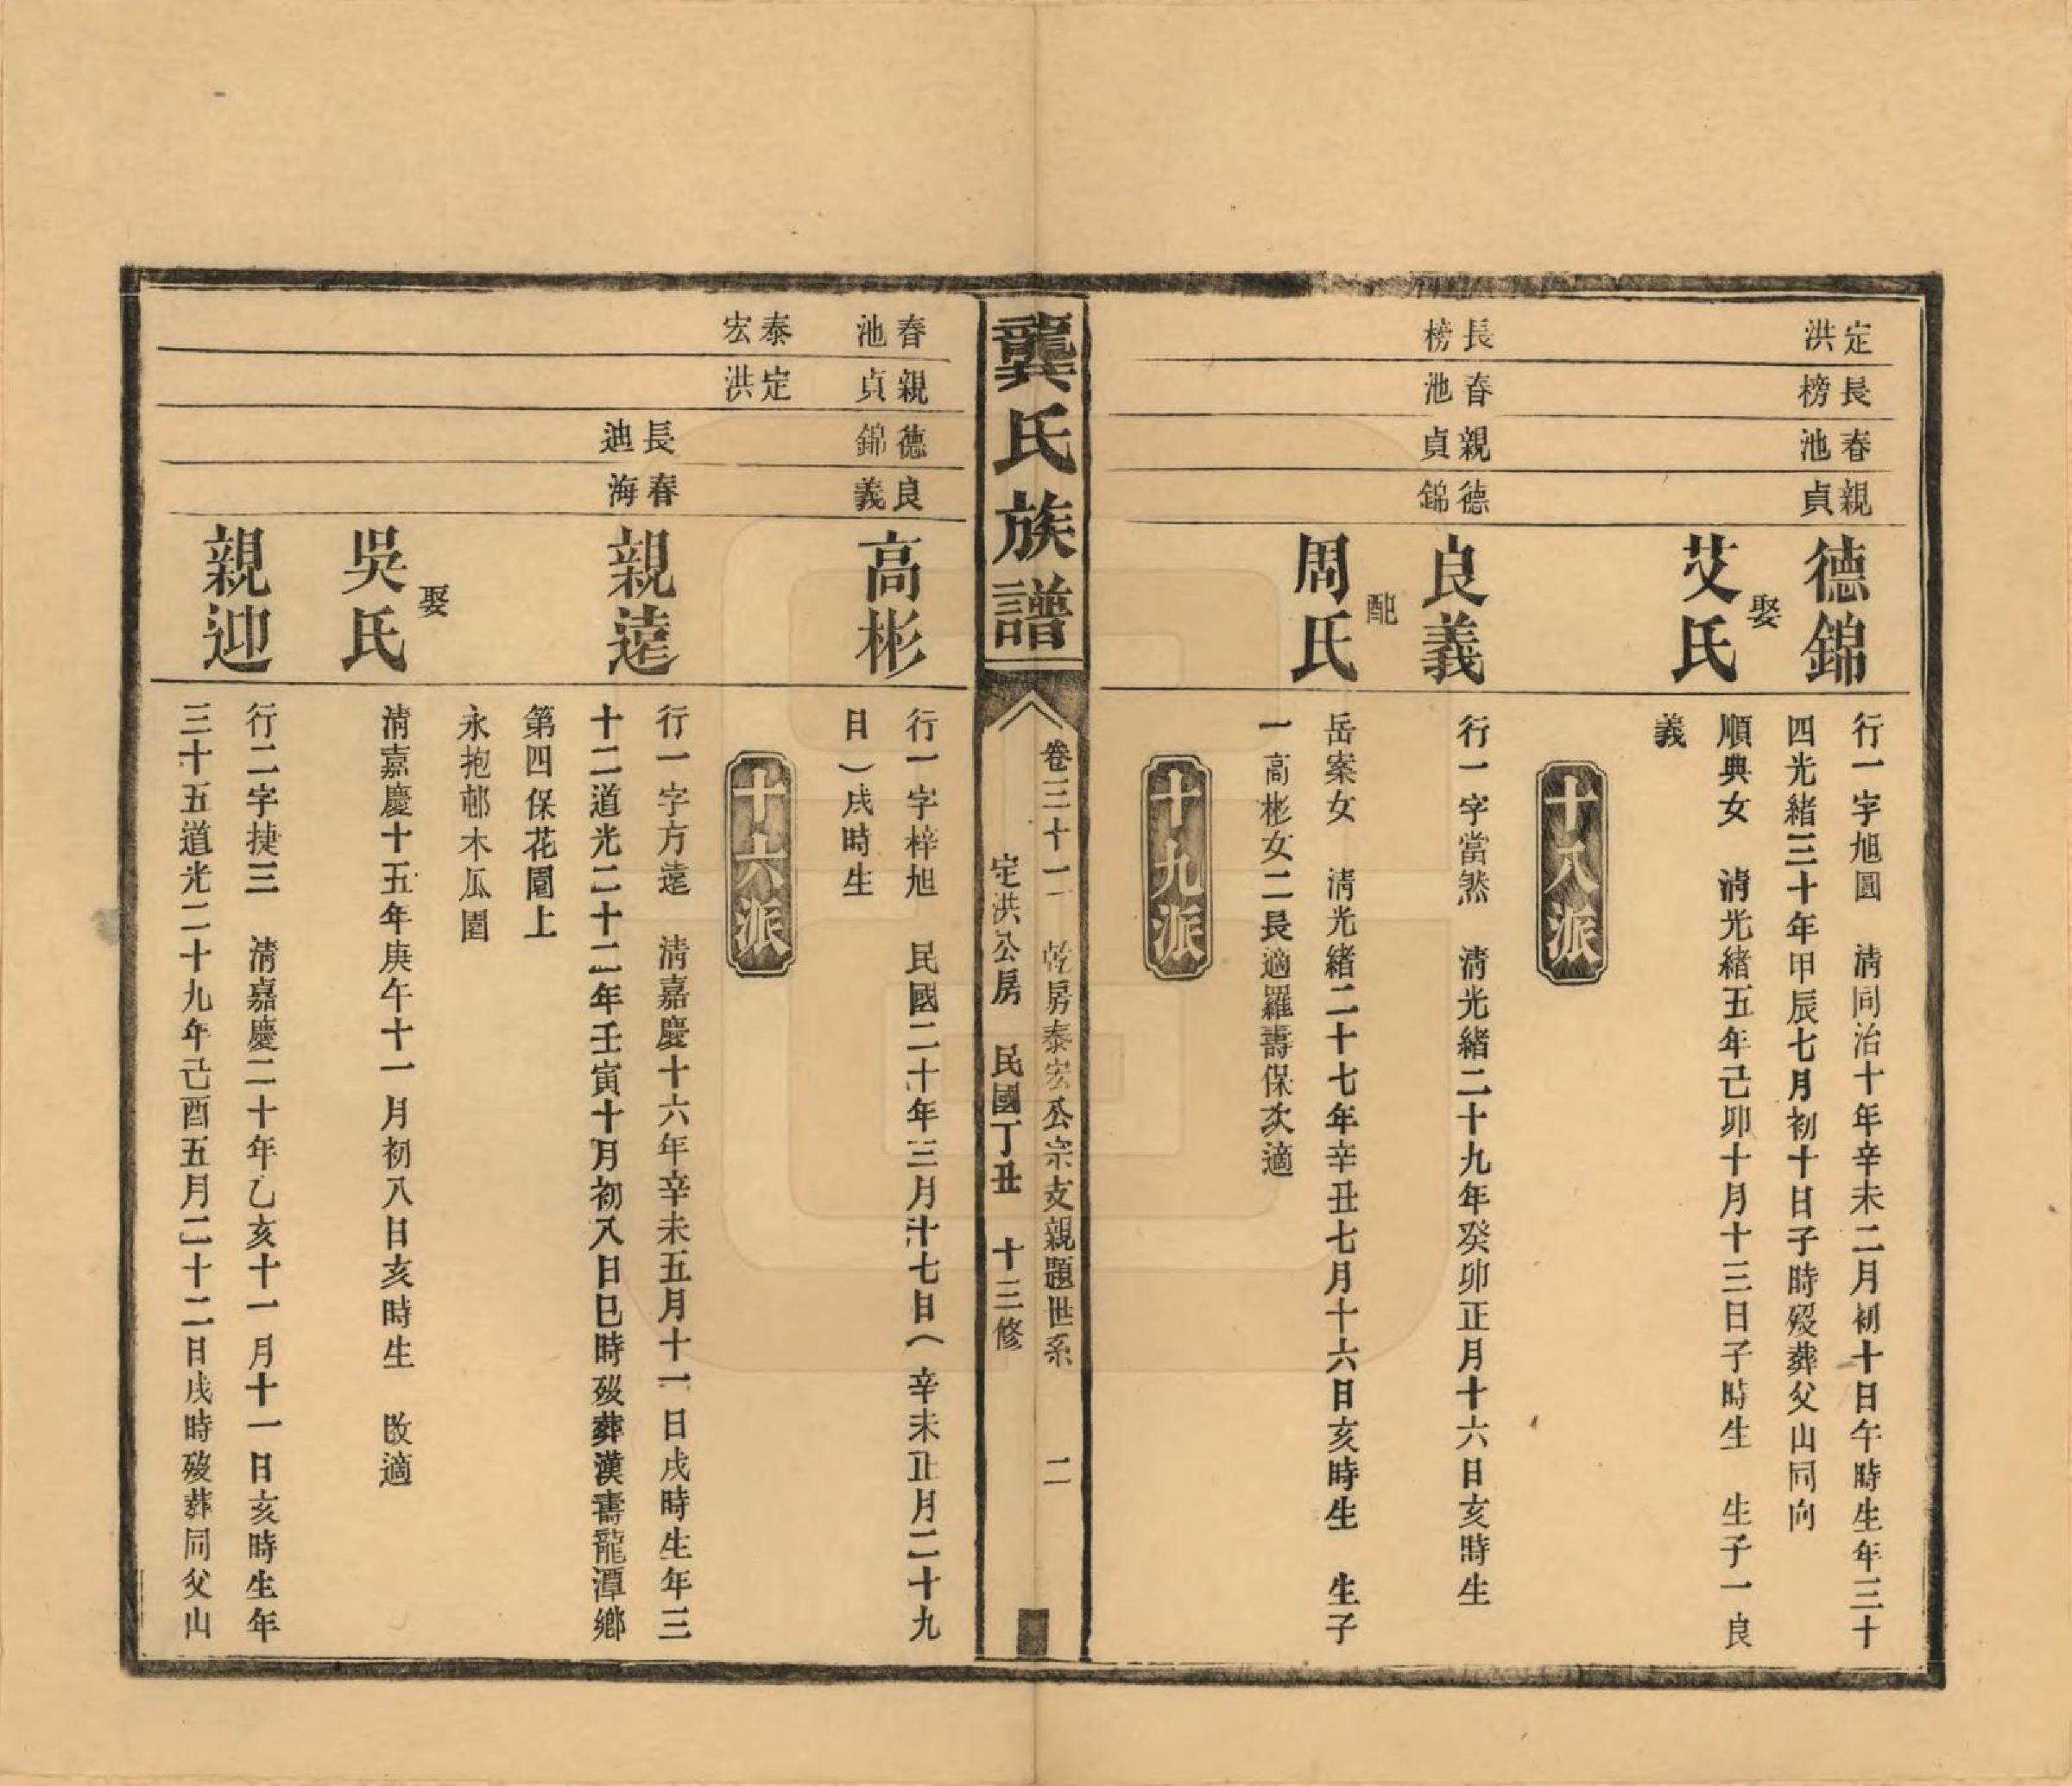 定洪
長榜
春池
親貞
德錦
行一字旭圓　清同治十年辛未二月初十日午時生年三十
四光緒三十年甲辰七月初十日子時殁葬父山同向
娶
艾氏
順典女　清光緒五年己卯十月十三日子時生　生子一良
義
十八派
長榜
春池
親貞
德錦
良義
行一字當然　清光緒二十九年癸卯正月十六日亥時生
配
周氏
岳案女　清光緒二十七年辛丑七月十六日亥時生　生子
一高彬女二長適羅壽保次適
十九派
龔氏族譜
卷三十一　乾房泰宏公宗支親題世系　二
定洪公房　民國丁丑　十三修
春池
親貞
德錦
良義
高彬
行一字梓旭　民國二十年三月十七日（辛未正月二十九
日）戌時生
十六派
泰宏
定洪
長迪
春海
親遠
行一字方遠　清嘉慶十六年辛未五月十一日戌時生年三
十二道光二十二年壬寅十月初八日巳時殁葬漢壽龍潭鄉
第四保花園上
永抱邨木瓜園
娶
吳氏
清嘉慶十五年庚午十一月初八日亥時生　改適
親迎
行二字捷三　清嘉慶二十年乙亥十一月十一日亥時生年
三十五道光二十九年己酉五月二十二日戌時殁葬同父山